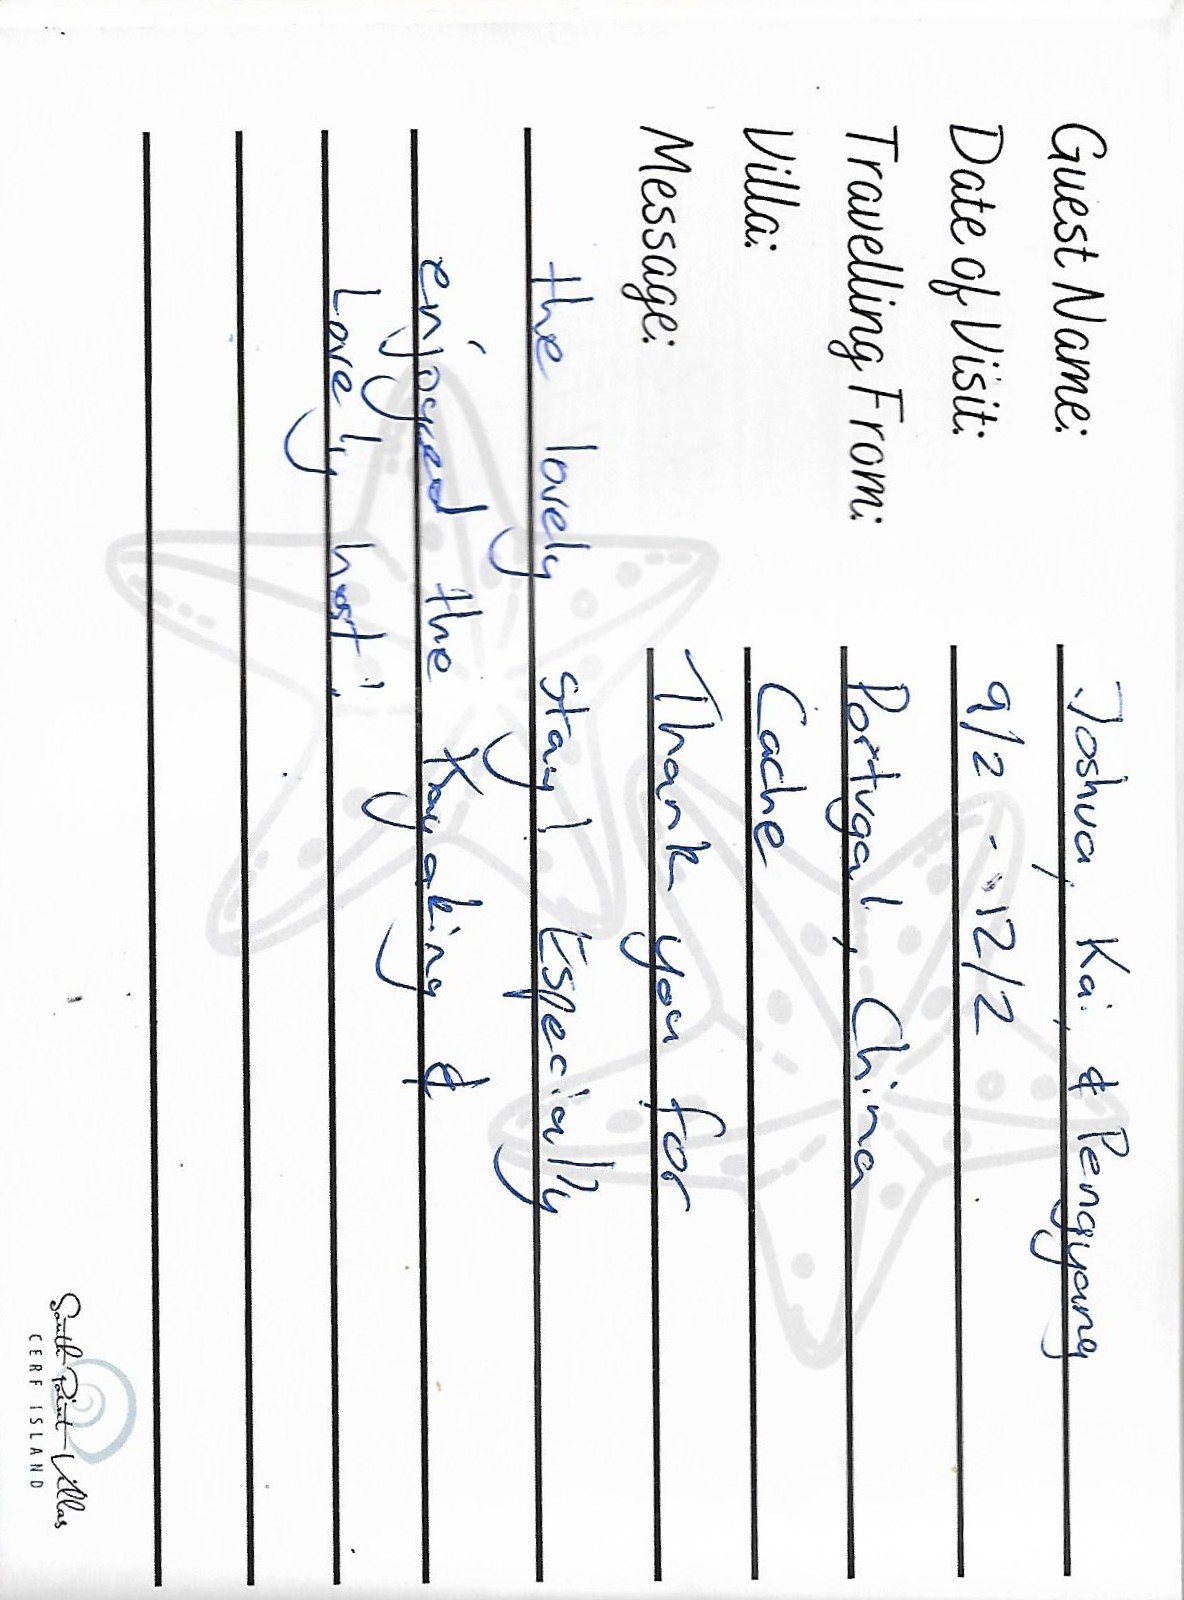 Guest Name: Joshua, Kai, & Pengyang
Date of Visit: 9/2 - 12/2
Travelling From: Portugal, China
Villa: Cache
Message: Thank you for
the lovely stay! Especially
enjoyed the Kayaking &
Lovely host!
South Point Villas
CERF ISLAND